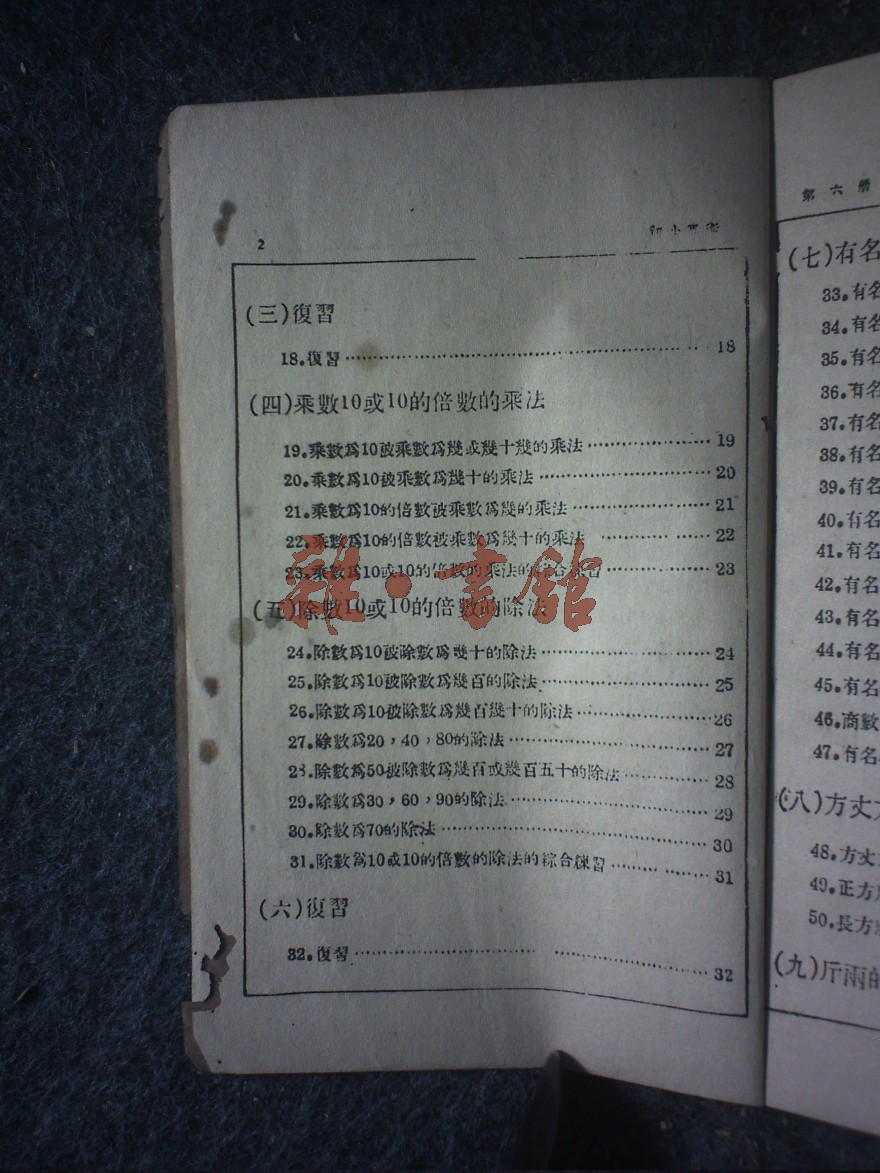 2
(三)復習
18.復習 18
(四)乘數10或10的倍數的乘法
19.乘數爲10被乘數爲幾或幾十幾的乘法 19
20.乘數爲10被乘數爲幾十的乘法 20
21.乘數爲10的倍數被乘數爲幾的乘法 21
22.乘數爲10的倍數被乘數爲幾十的乘法 22
23.乘數爲10或10的倍數的乘法的綜合練習 23
(五)除數10或10的倍數的除法
24.除數爲10被除數爲幾十的除法 24
25.除數爲10被除數爲幾百的除法 25
26.除數爲10被除數爲幾百幾十的除法 26
27.除數爲20，40，80的除法 27
28.除數爲50被除數爲幾百或幾百五十的除法 28
29.除數爲30，60，90的除法 29
30.除數爲70的除法 30
31.除數爲10或10的倍數的除法的綜合練習 31
(六)復習
32.復習 32
雜·書館
第六冊
(七)有名
33.有名
34.有名
35.有名
36.有名
37.有名
38.有名
39.有名
40.有名
41.有名
42.有名
43.有名
44.有名
45.有名
46.商數
47.有名
(八)方丈
48.方丈
49.正方
50.長方
(九)斤兩的